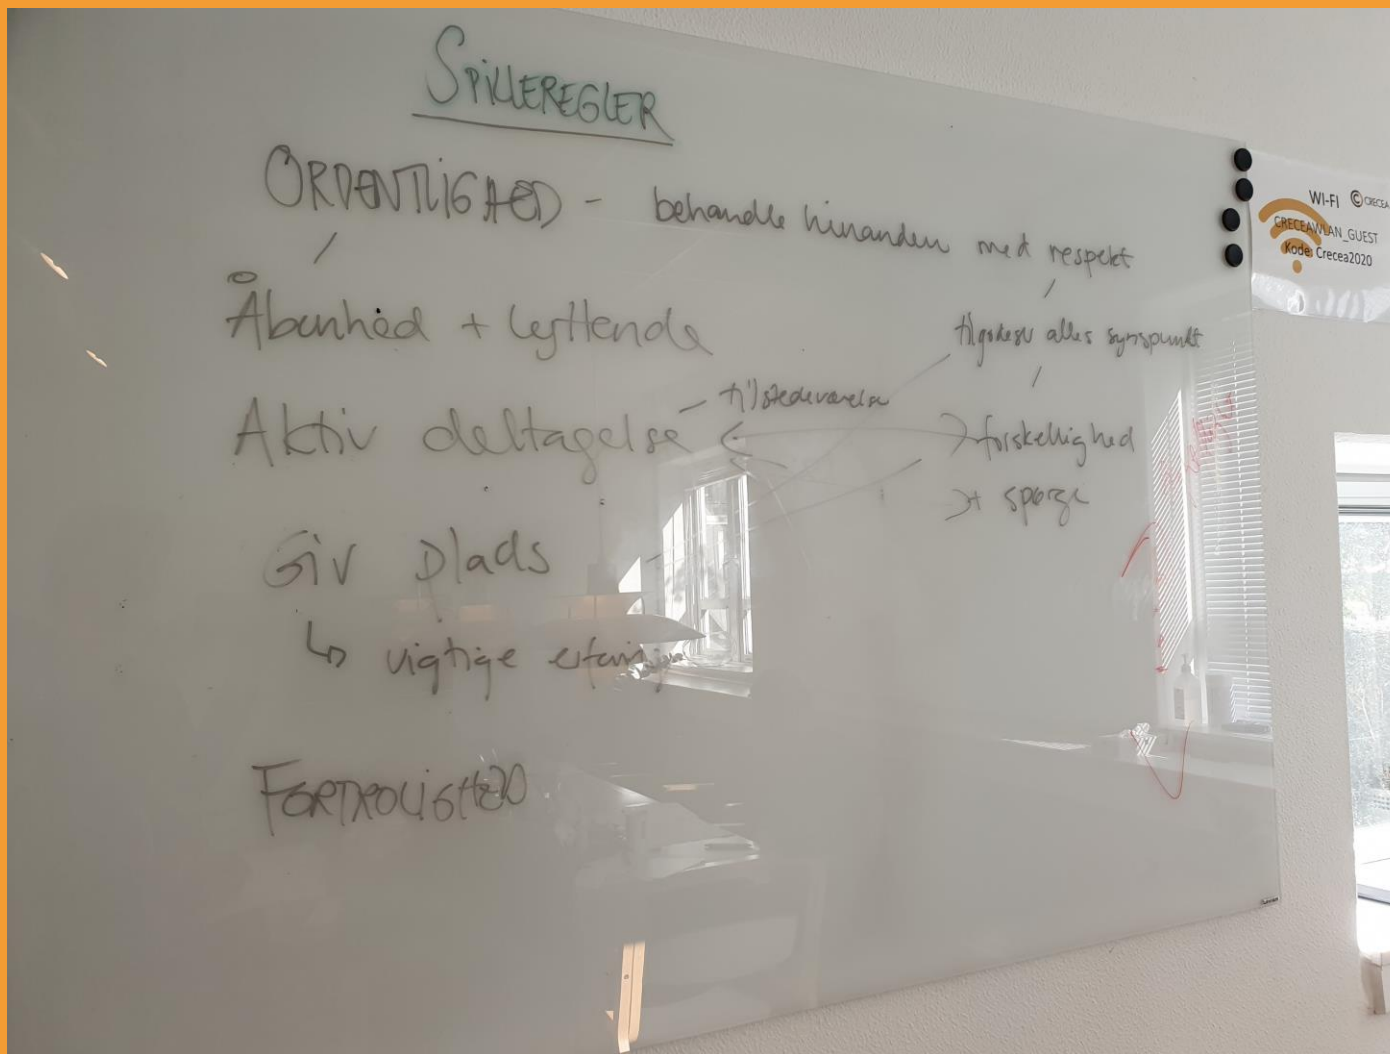 SPILLEREGLER
ORDENTLIGHED - behandle hinanden med respekt
Åbenhed + lyttende
alles synspunkt
Aktiv deltagelse - tilstedeværelse
forskellighed
+ spørge
Giv plads
↳ vigtige
FORTROLIGHED
WI-FI © CRECEA
CRECEAWLAN_GUEST
Kode: Crecea2020